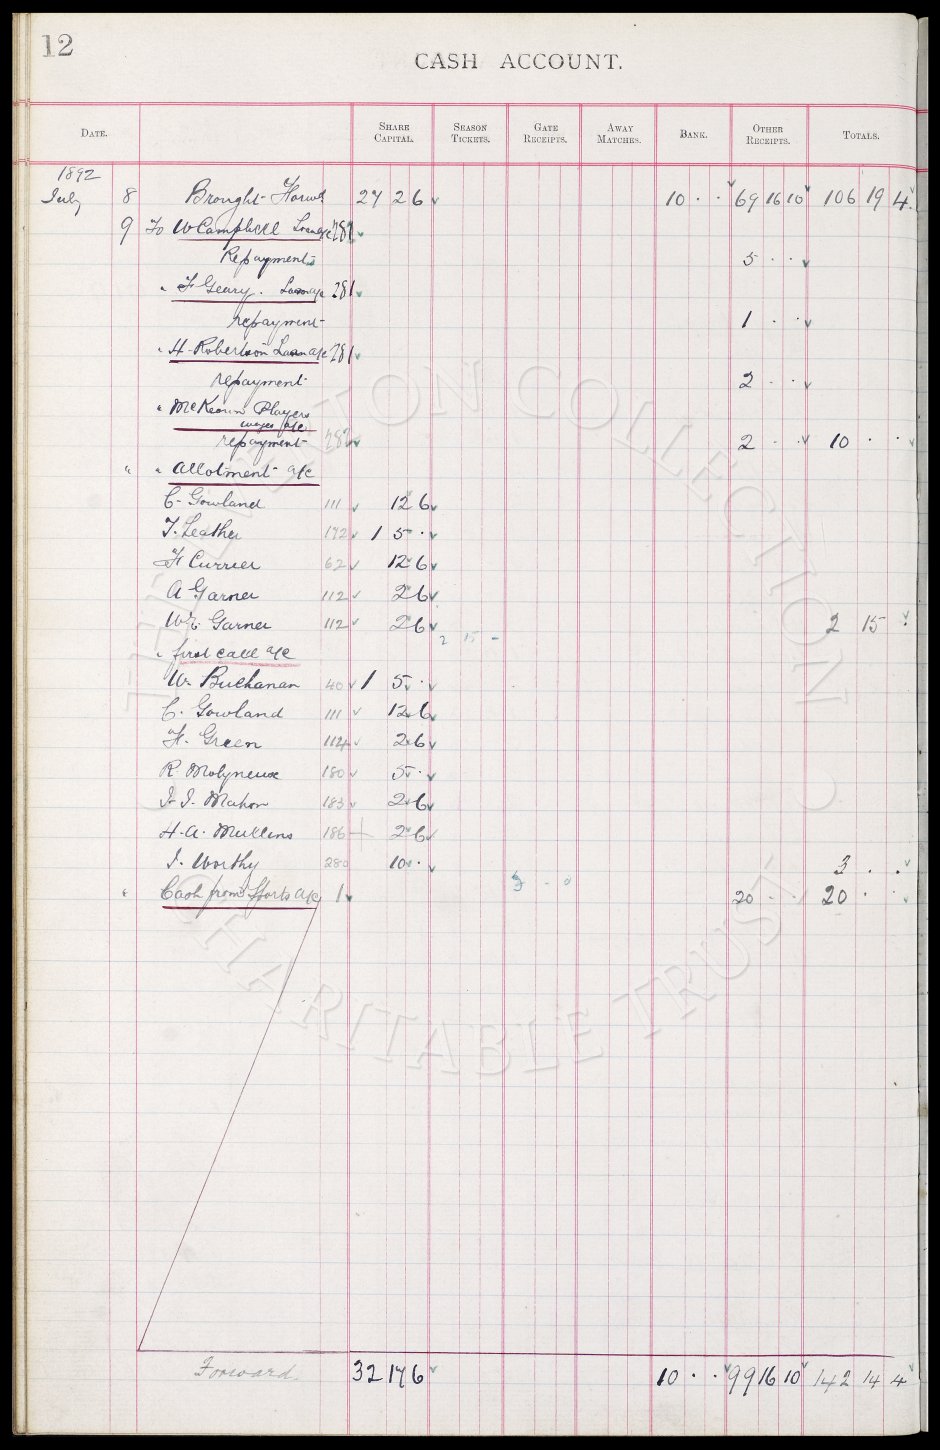 12
CASH ACCOUNT.
DATE. SHARE CAPITAL. SEASON TICKETS. GATE RECEIPTS. AWAY MATCHES. BANK. OTHER RECEIPTS. TOTALS.
1892
July 8 Brought Forwd 27 2 6 10 · · 69 16 10 106 19 4
9 To W Campbell Loan a/c 282
Repayment 5 · ·
" F Geary. Loan a/c 281
repayment 1 · ·
" H. Robertson Loan a/c 281
repayment 2 · ·
" McKeown Players
wages a/c
repayment 282 2 · · 10 · ·
" " Allotment a/c
C. Gowland 111 12 6
T. Leather 172 1 5 ·
H Currier 62 12 6
A Garner 112 2 6
Wm Garner 112 2 6 2 15 ·
2 15 -
" first call a/c
Wm Buchanan 40 1 5 ·
C. Gowland 111 12 6
H. Green 114 2 6
R. Molyneux 180 5 ·
J. J. Mahon 183 2 6
H. A. Mullins 186 2 6
J. Worthy 280 10 · 3 · ·
3 - 0
" Cash from Sports a/c 1 20 · · 20 · ·
Forward 32 17 6 10 · · 99 16 10 142 14 4
EVERTON COLLECTION
CHARITABLE TRUST